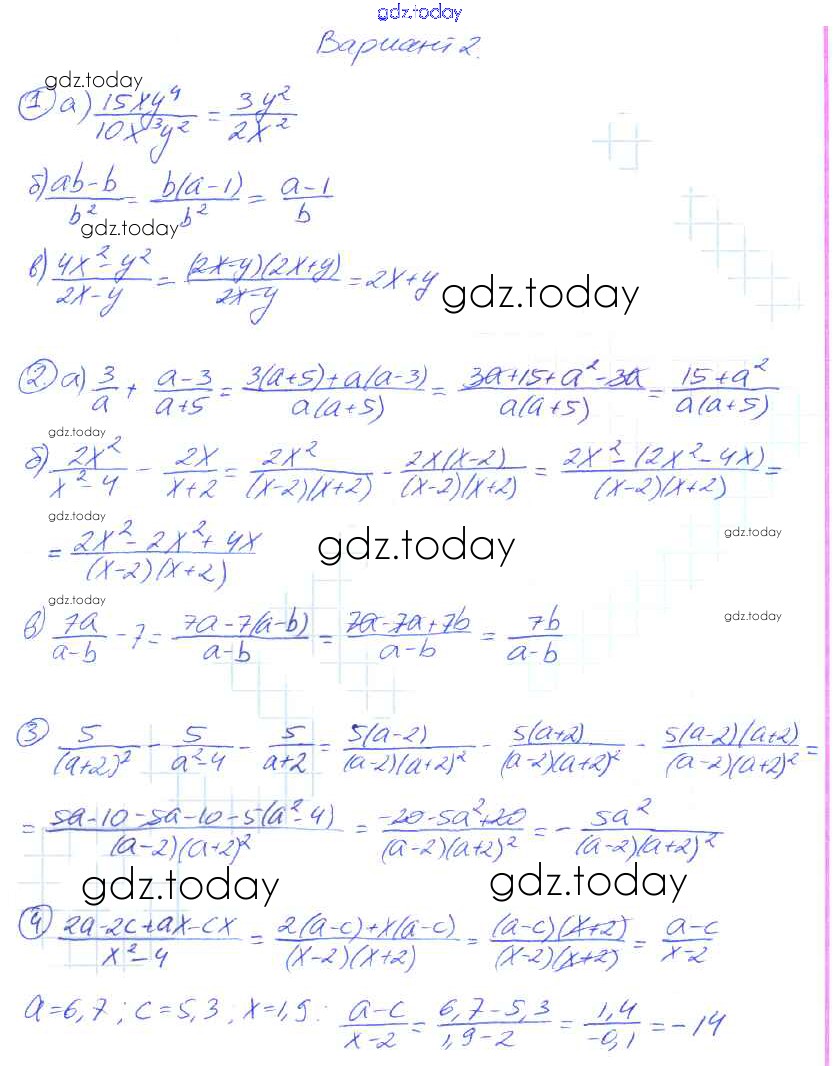 gdz.today
Вариант 2.
gdz.today
① а) 15xy⁴/10x³y² = 3y²/2x²
б) ab-b/b² = b(a-1)/b² = a-1/b
gdz.today
в) 4x²-y²/2x-y = (2x-y)(2x+y)/2x-y = 2x+y
gdz.today
② а) 3/a + a-3/a+5 = 3(a+5)+a(a-3)/a(a+5) = 3a+15+a²-3a/a(a+5) = 15+a²/a(a+5)
gdz.today
б) 2x²/x²-4 - 2x/x+2 = 2x²/(x-2)(x+2) - 2x(x-2)/(x-2)(x+2) = 2x²-(2x²-4x)/(x-2)(x+2) =
gdz.today
= 2x²-2x²+4x/(x-2)(x+2)
gdz.today
gdz.today
gdz.today
gdz.today
в) 7a/a-b - 7 = 7a-7(a-b)/a-b = 7a-7a+7b/a-b = 7b/a-b
③ 5/(a+2)² - 5/a²-4 - 5/a+2 = 5(a-2)/(a-2)(a+2)² - 5(a+2)/(a-2)(a+2)² - 5(a-2)(a+2)/(a-2)(a+2)² =
= 5a-10-5a-10-5(a²-4)/(a-2)(a+2)² = -20-5a²+20/(a-2)(a+2)² = - 5a²/(a-2)(a+2)²
gdz.today
gdz.today
④ 2a-2c+ax-cx/x²-4 = 2(a-c)+x(a-c)/(x-2)(x+2) = (a-c)(x+2)/(x-2)(x+2) = a-c/x-2
a=6,7; c=5,3; x=1,9: a-c/x-2 = 6,7-5,3/1,9-2 = 1,4/-0,1 = -14